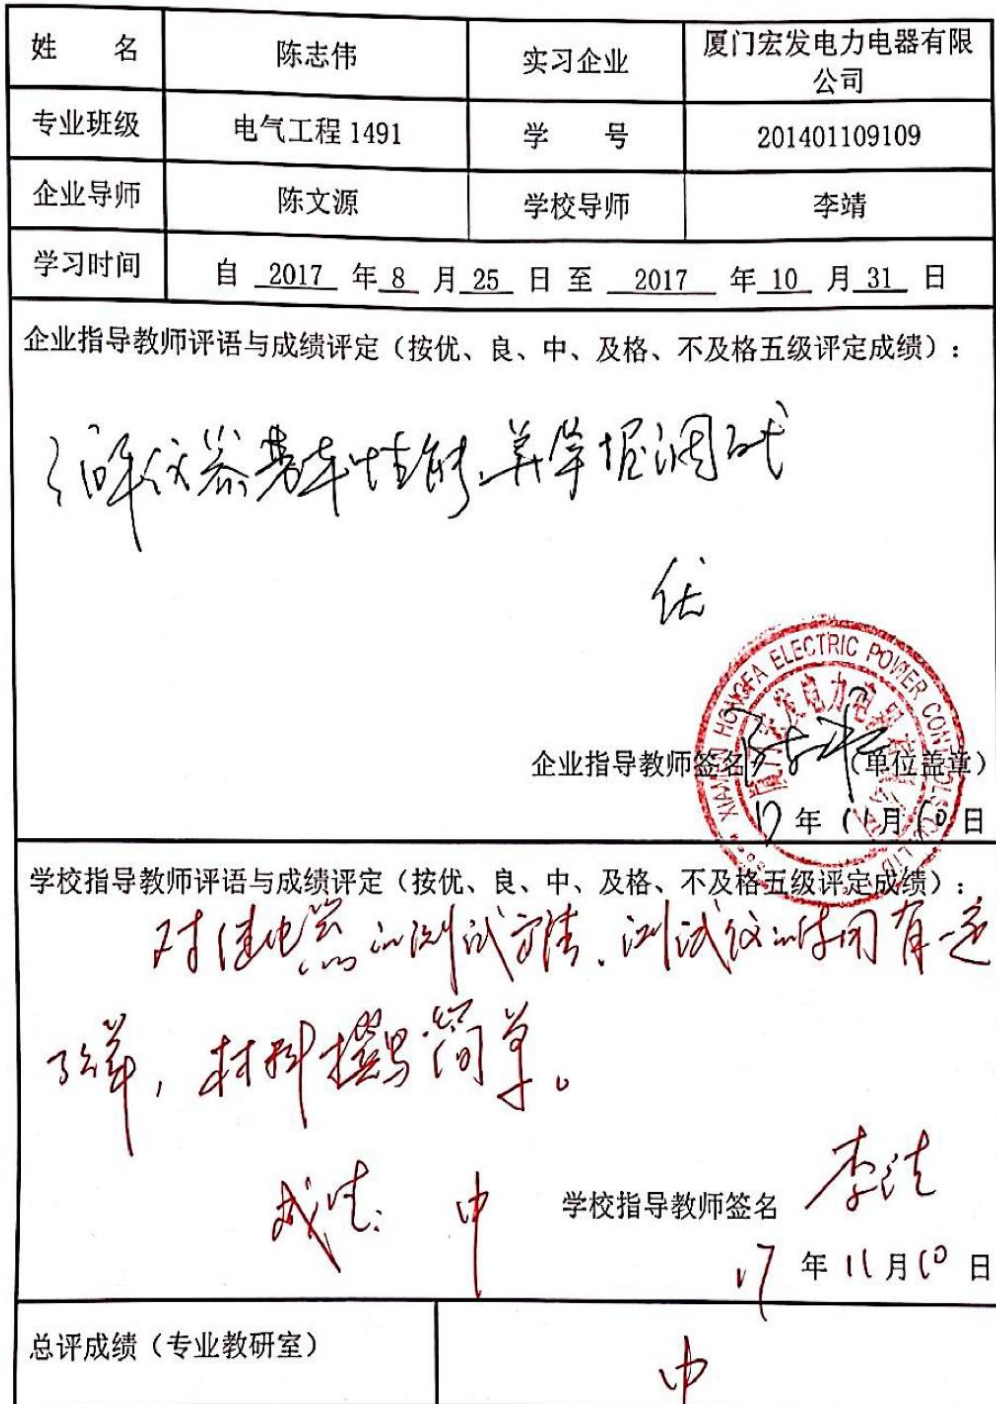 姓 名 陈志伟 实习企业 厦门宏发电力电器有限公司
专业班级 电气工程 1491 学 号 201401109109
企业导师 陈文源 学校导师 李靖
学习时间 自 2017 年 8 月 25 日 至 2017 年 10 月 31 日
企业指导教师评语与成绩评定（按优、良、中、及格、不及格五级评定成绩）：
了解仪器基本性能,并掌握调试
优
XIAMEN HONGFA ELECTRIC POWER CONTROLS CO., LTD
厦门宏发电力电器有限公司
企业指导教师签名 （单位盖章）
17 年 11 月 10 日
学校指导教师评语与成绩评定（按优、良、中、及格、不及格五级评定成绩）：
对继电器的测试方法、测试仪的使用有一定
了解，材料撰写简单。
成绩: 中 学校指导教师签名 李靖
17 年 11 月 10 日
总评成绩（专业教研室） 中